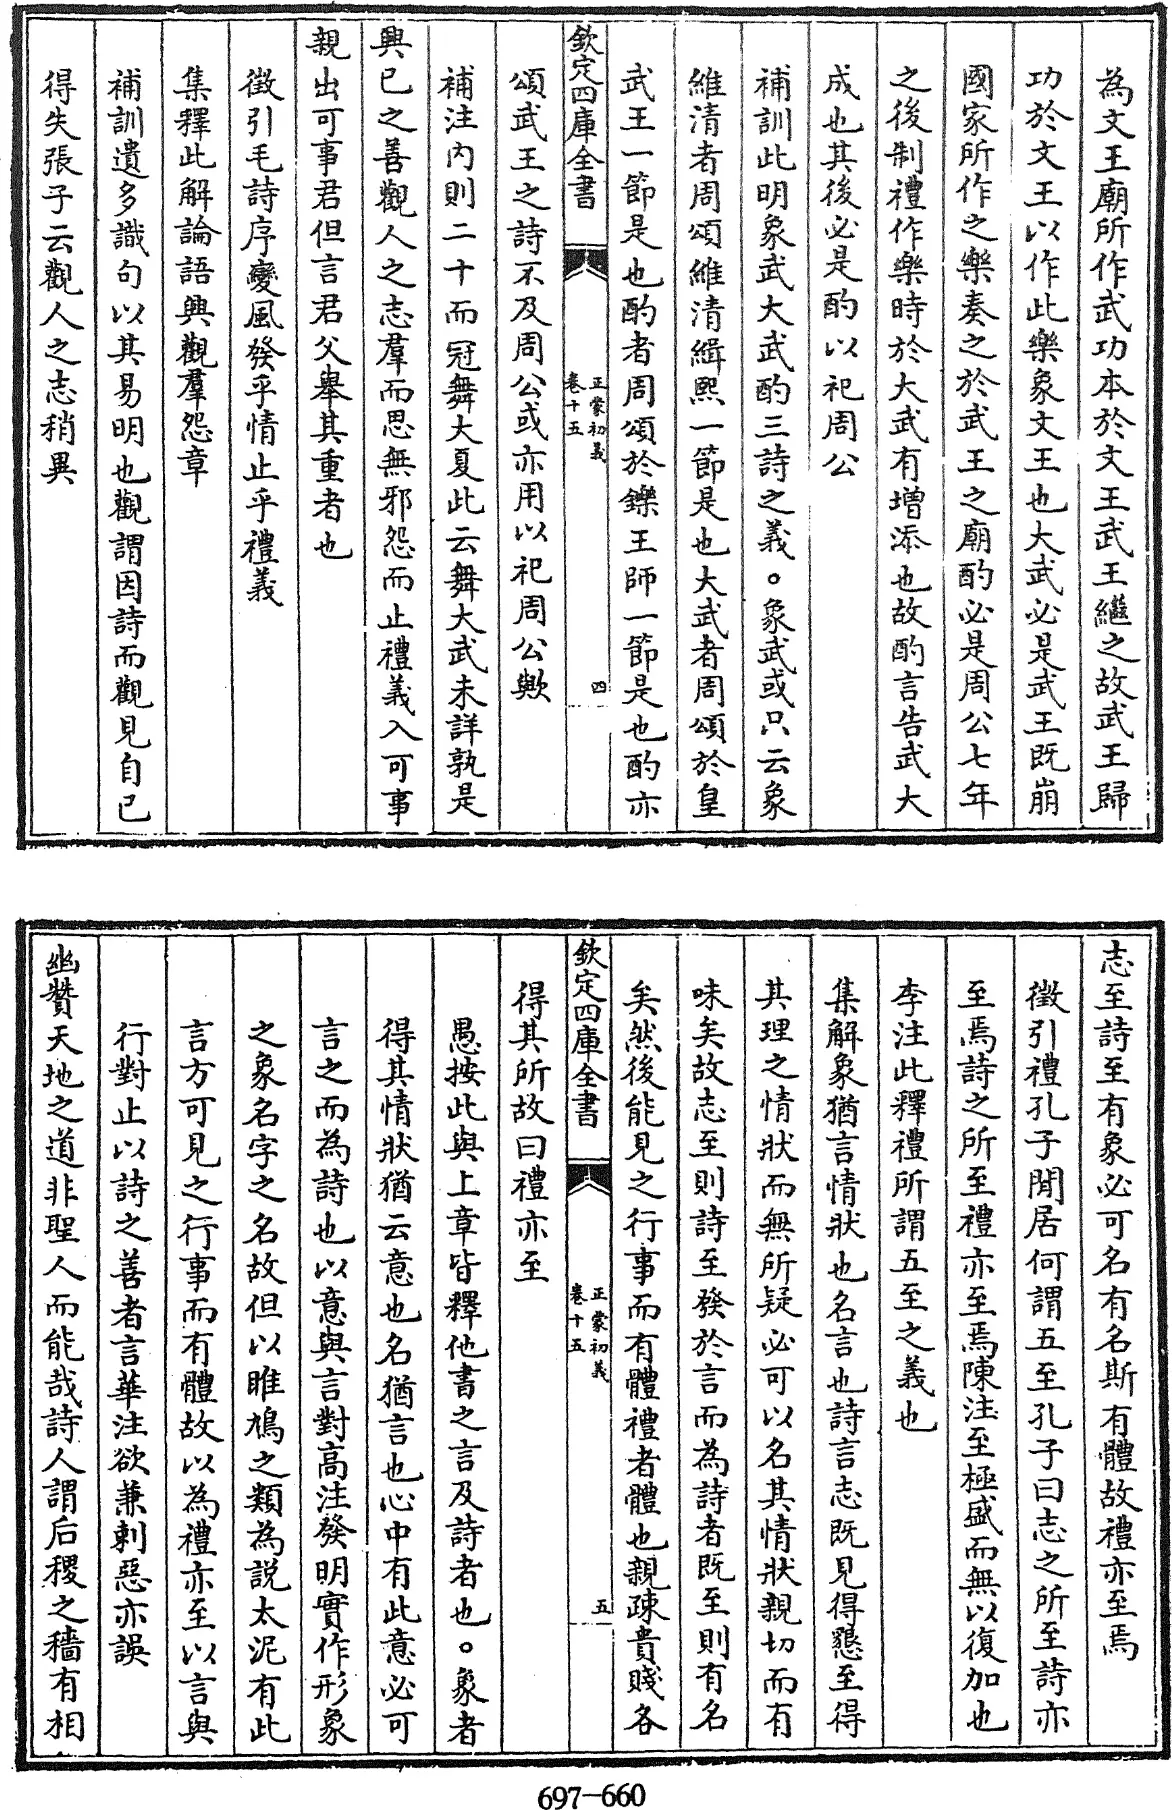 為文王廟所作武功本於文王武王繼之故武王歸
功於文王以作此樂象文王也大武必是武王既崩
國家所作之樂奏之於武王之廟酌必是周公七年
之後制禮作樂時於大武有增添也故酌言告武大
成也其後必是酌以祀周公
補訓此明象武大武酌三詩之義。象武或只云象
維清者周頌維清緝熙一節是也大武者周頌於皇
武王一節是也酌者周頌於鑠王師一節是也酌亦
欽定四庫全書
正蒙初義
卷十五
四
頌武王之詩不及周公或亦用以祀周公歟
補注內則二十而冠舞大夏此云舞大武未詳孰是
興已之善觀人之志羣而思無邪怨而止禮義入可事
親出可事君但言君父舉其重者也
徵引毛詩序變風發乎情止乎禮義
集釋此解論語興觀羣怨章
補訓遺多識句以其易明也觀謂因詩而觀見自已
得失張子云觀人之志稍異
志至詩至有象必可名有名斯有體故禮亦至焉
徵引禮孔子閒居何謂五至孔子曰志之所至詩亦
至焉詩之所至禮亦至焉陳注至極盛而無以復加也
李注此釋禮所謂五至之義也
集解象猶言情狀也名言也詩言志既見得懇至得
其理之情狀而無所疑必可以名其情狀親切而有
味矣故志至則詩至發於言而為詩者既至則有名
矣然後能見之行事而有體禮者體也親疎貴賤各
欽定四庫全書
正蒙初義
卷十五
五
得其所故曰禮亦至
愚按此與上章皆釋他書之言及詩者也。象者
得其情狀猶云意也名猶言也心中有此意必可
言之而為詩也以意與言對高注發明實作形象
之象名字之名故但以雎鳩之類為說太泥有此
言方可見之行事而有體故以為禮亦至以言與
行對止以詩之善者言華注欲兼刺惡亦誤
幽贊天地之道非聖人而能哉詩人謂后稷之穡有相
697-660